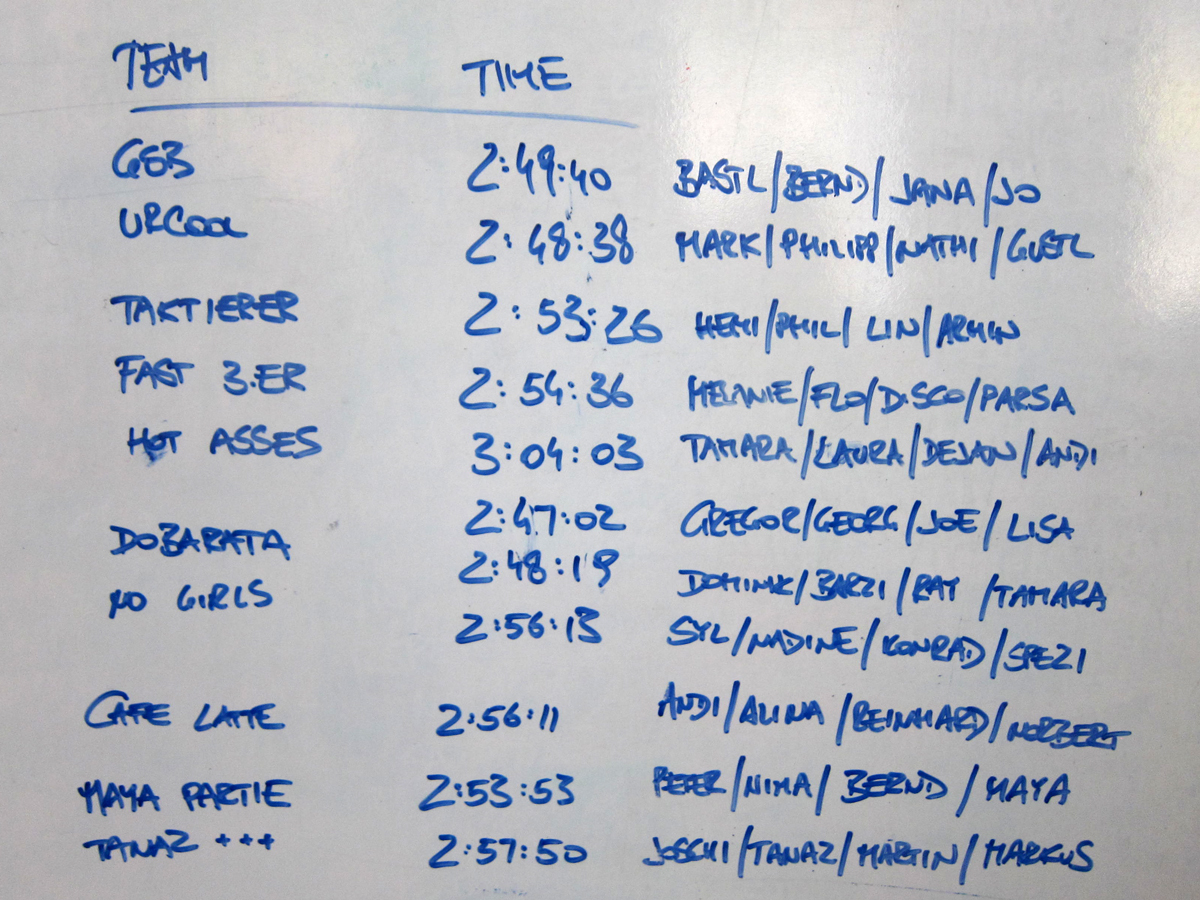 TEAM TIME
GSB 2:49:40 BASTL/BERND/JANA/JO
URCOOL 2:48:38 MARK/PHILIPP/NATHI/GUETL
TAKTIERER 2:53:26 HEMI/PHIL/LIN/ARMIN
FAST 3.ER 2:54:36 MELANIE/FLO/DISCO/PARSA
HOT ASSES 3:04:03 TAMARA/LAURA/DEJAN/ANDI
DOBARATA 2:47:02 GREGOR/GEORG/JOE/LISA
NO GIRLS 2:48:19 DOMINIK/BARZI/RAY/TAMARA
2:56:13 SYL/NADINE/KONRAD/SPEZI
CAFE LATTE 2:56:11 ANDI/ALINA/REINHARD/NORBERT
MAYA PARTIE 2:53:53 PETER/NIMA/BERND/MAYA
TANAZ +++ 2:57:50 JOSCHI/TANAZ/MARTIN/MARKUS